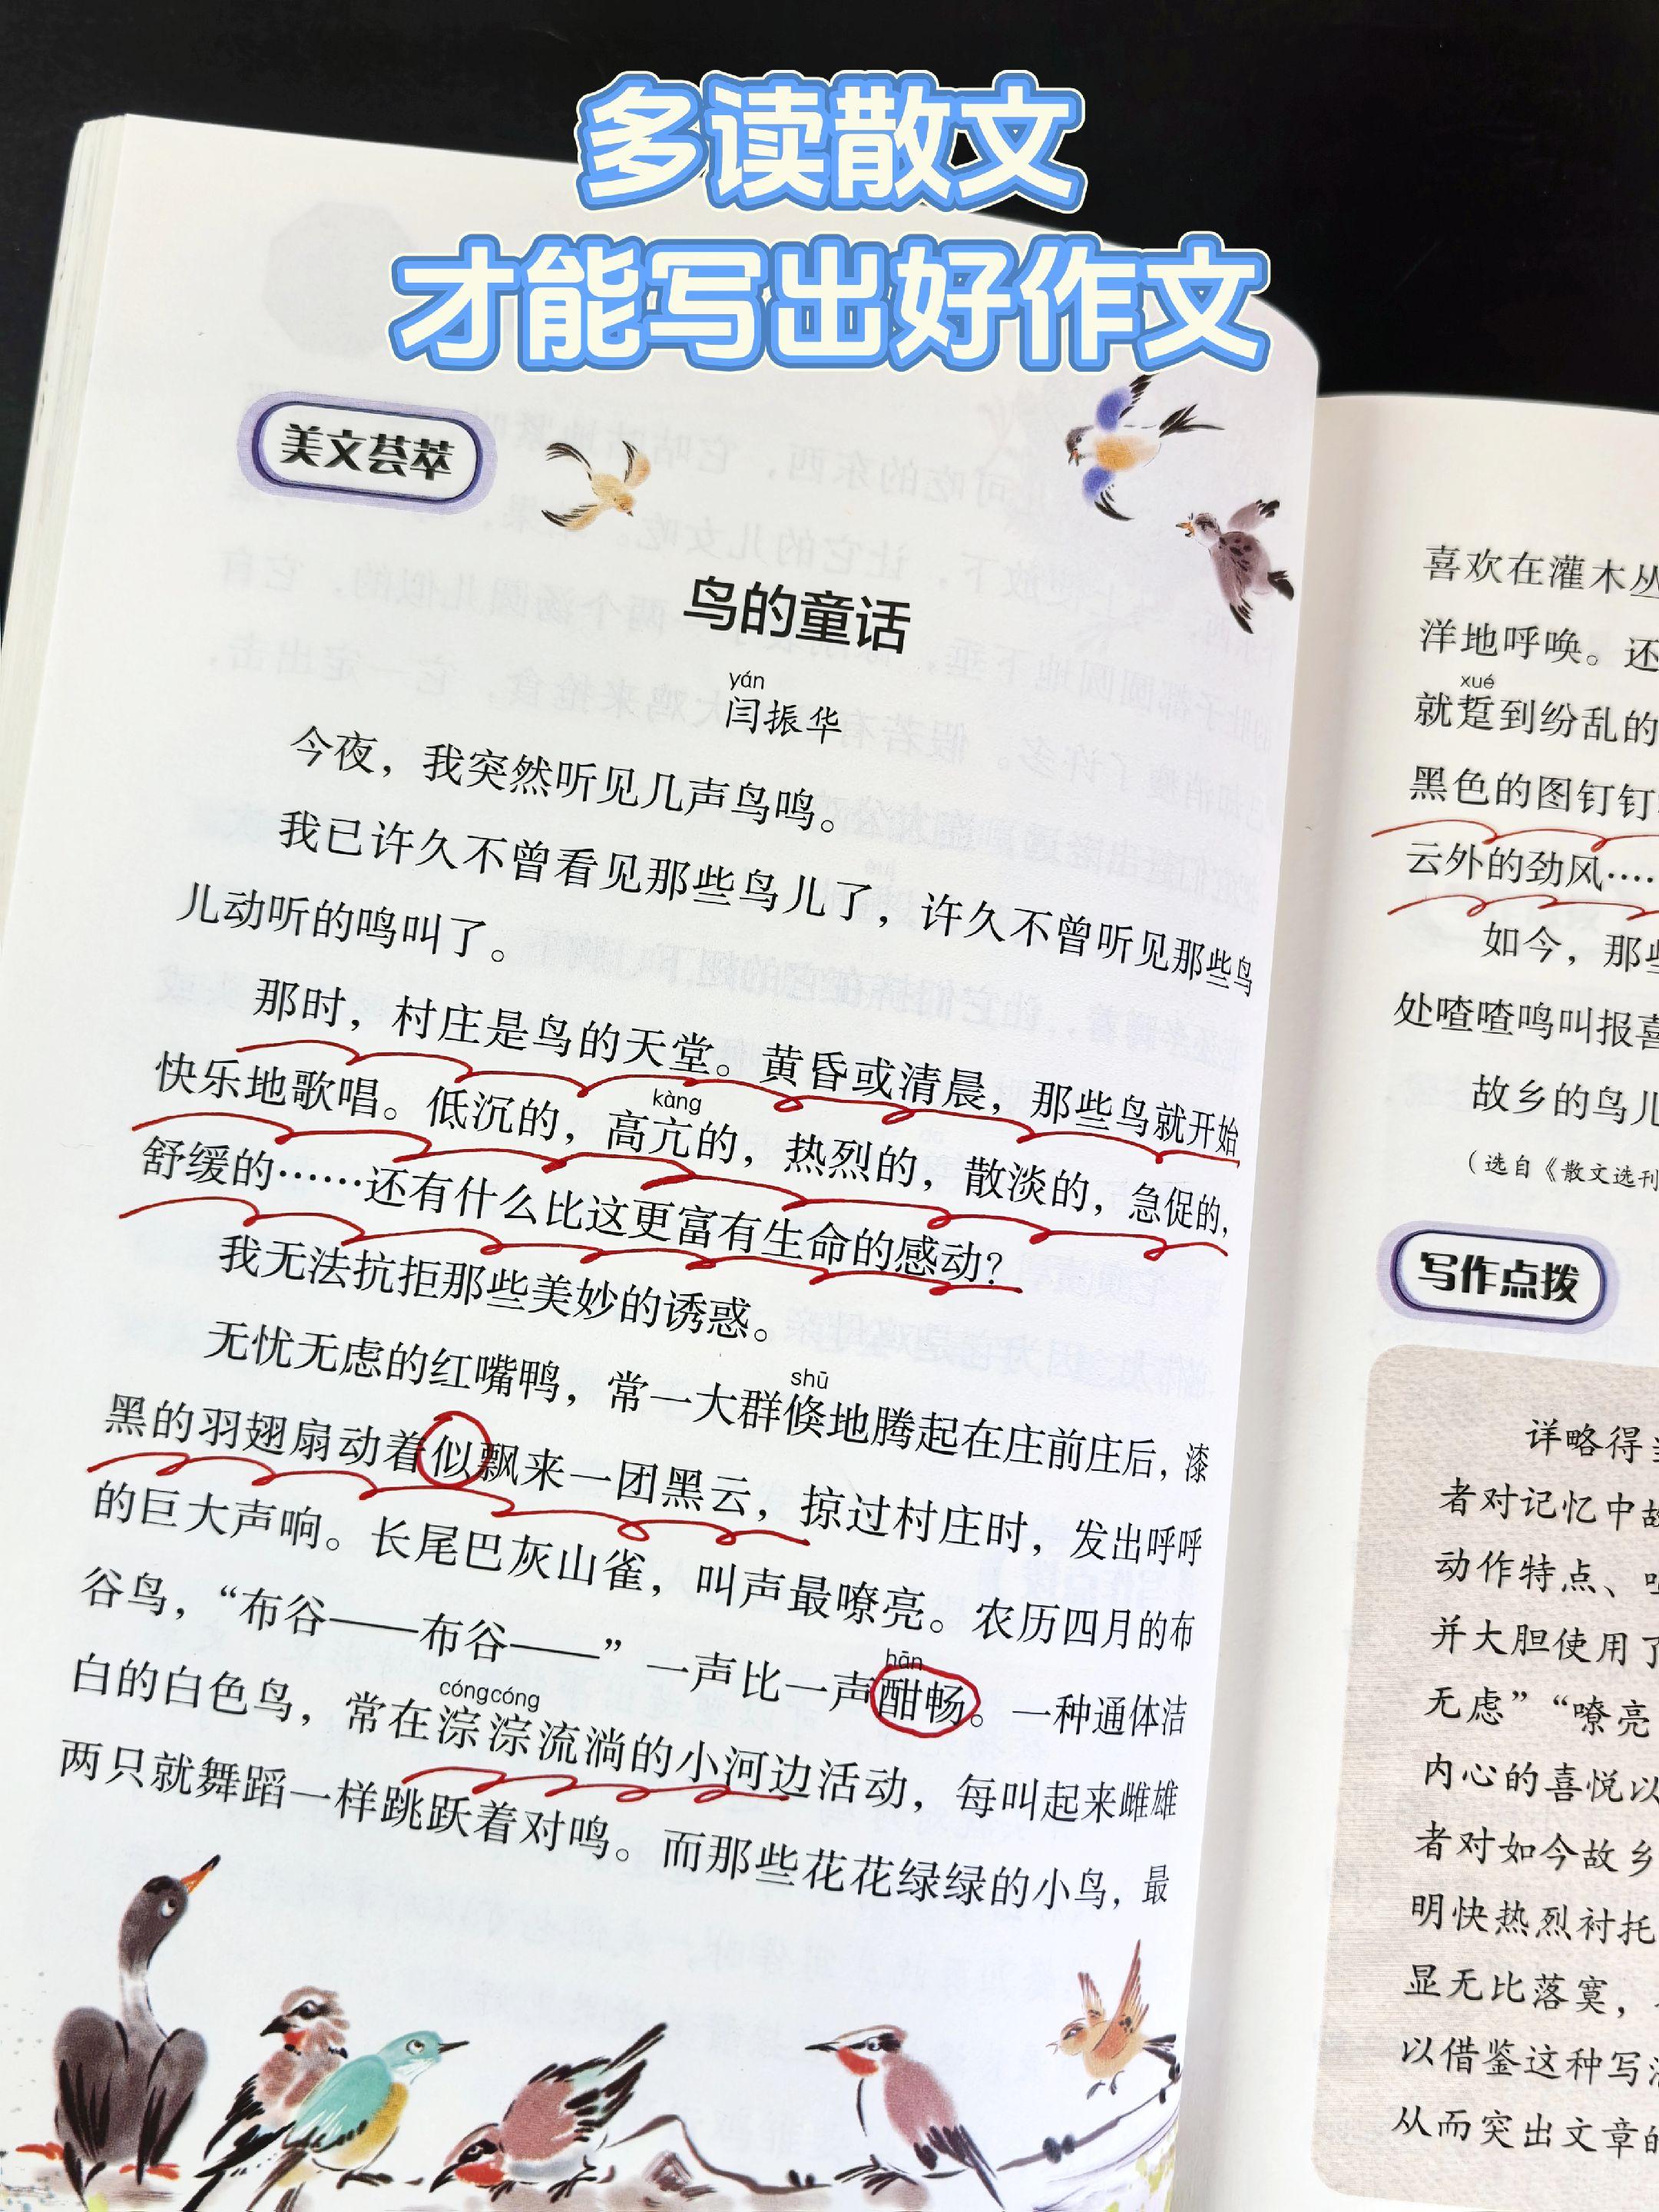 多读散文
才能写出好作文
美文荟萃
鸟的童话
yán
闫振华
今夜，我突然听见几声鸟鸣。
我已许久不曾看见那些鸟儿了，许久不曾听见那些鸟
儿动听的鸣叫了。
那时，村庄是鸟的天堂。黄昏或清晨，那些鸟就开始
快乐地歌唱。低沉的，高亢的，热烈的，散淡的，急促的，
kàng
舒缓的……还有什么比这更富有生命的感动？
我无法抗拒那些美妙的诱惑。
无忧无虑的红嘴鸭，常一大群倏地腾起在庄前庄后，漆
shū
黑的羽翅扇动着似飘来一团黑云，掠过村庄时，发出呼呼
的巨大声响。长尾巴灰山雀，叫声最嘹亮。农历四月的布
谷鸟，“布谷——布谷——”一声比一声酣畅。一种通体洁
hān
白的白色鸟，常在淙淙流淌的小河边活动，每叫起来雌雄
cóngcóng
两只就舞蹈一样跳跃着对鸣。而那些花花绿绿的小鸟，最
喜欢在灌木丛
洋地呼唤。还
xué
就踅到纷乱的
黑色的图钉钉
云外的劲风……
如今，那些
处喳喳鸣叫报喜
故乡的鸟儿
（选自《散文选刊
写作点拨
详略得当
者对记忆中故
动作特点、
并大胆使用了
无虑”“嘹亮
内心的喜悦以
者对如今故乡
明快热烈衬托
显无比落寞，
以借鉴这种写
从而突出文章的